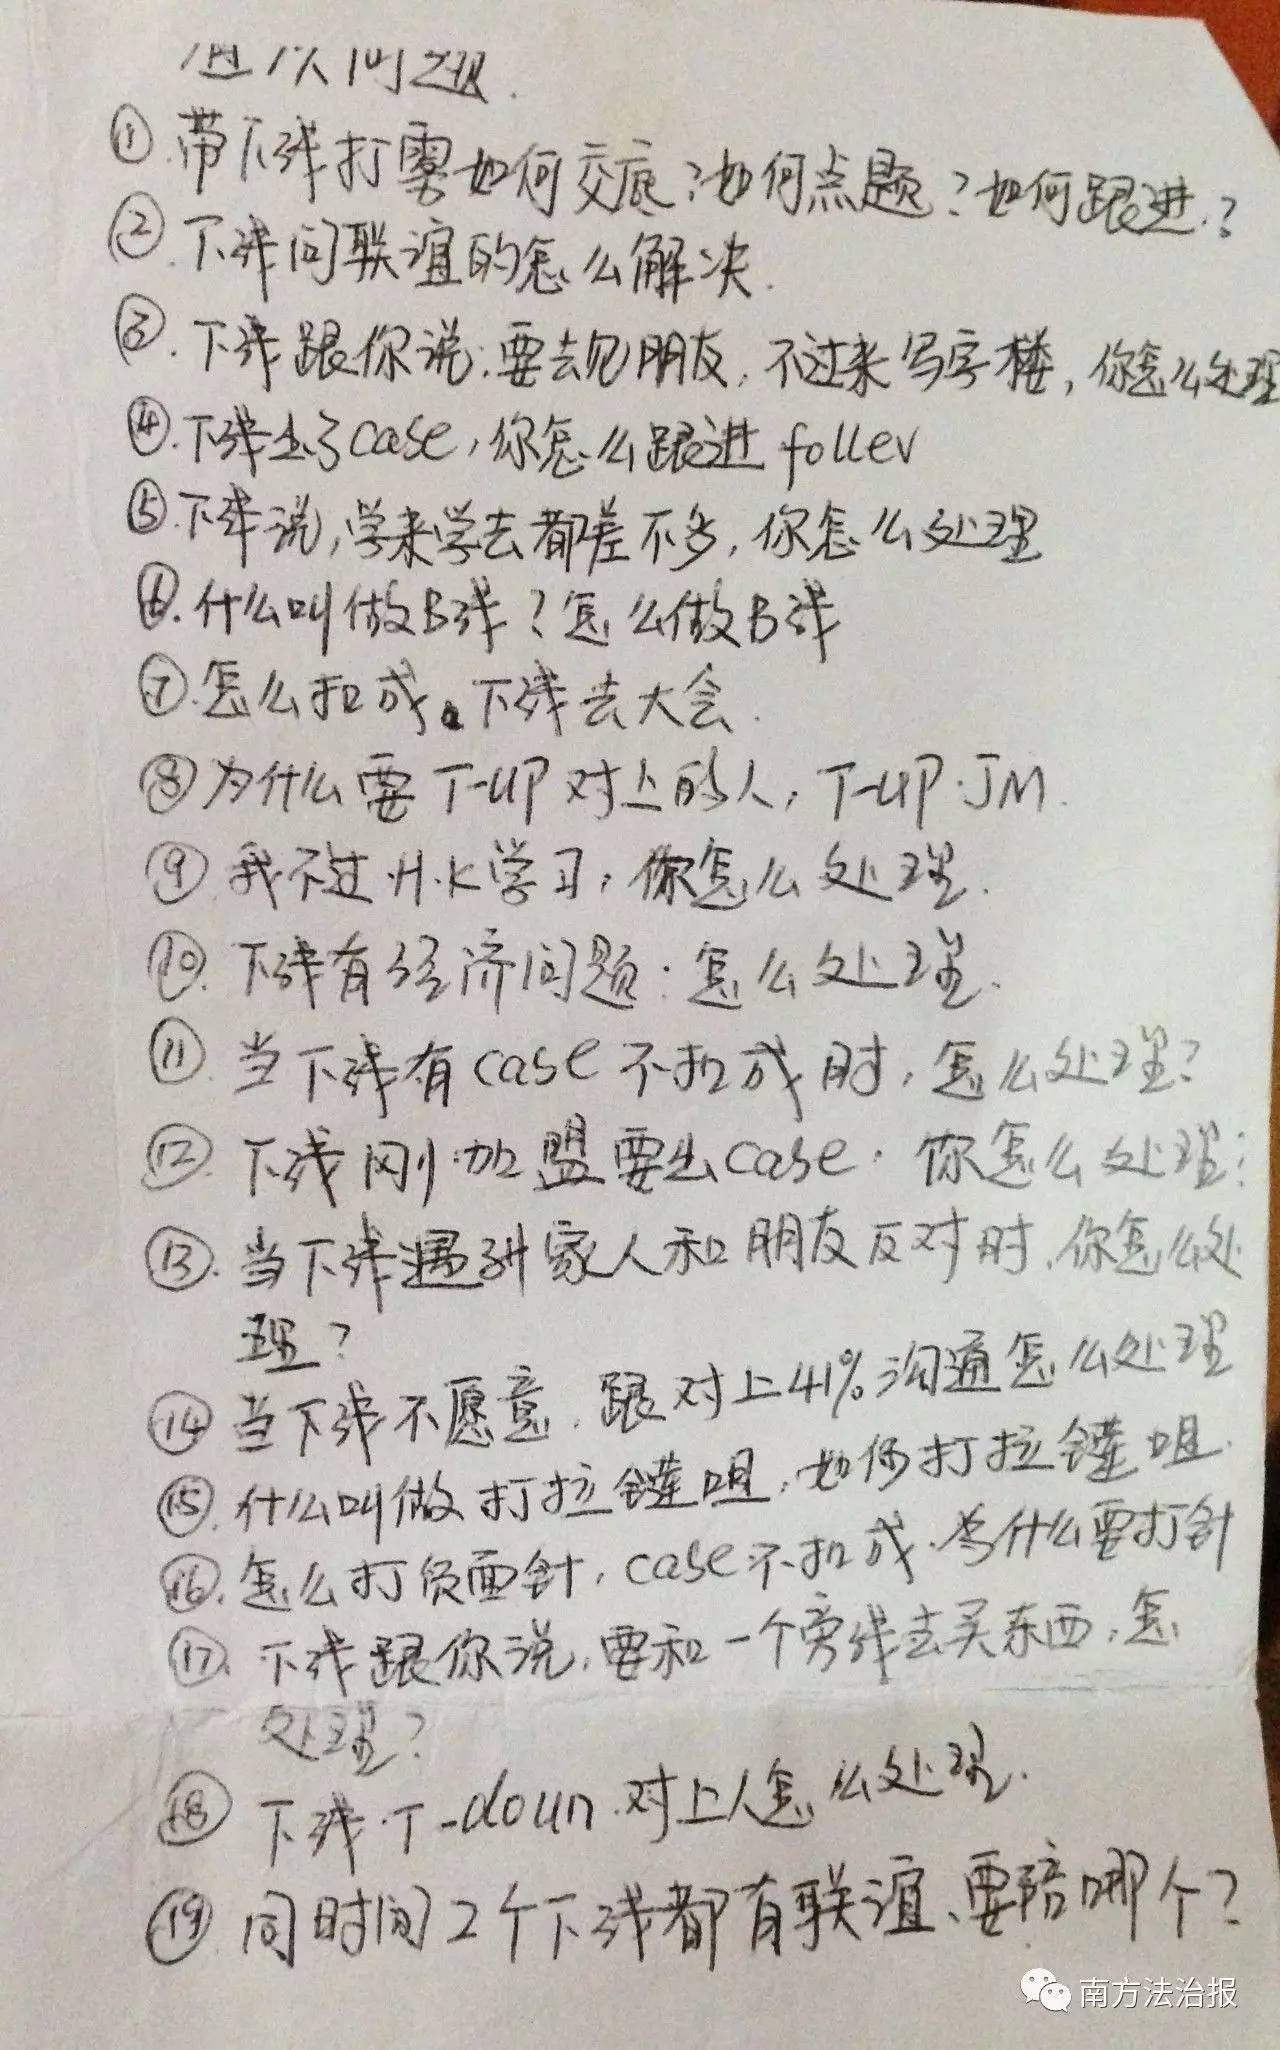 问题.
① 带下线打雾如何交底?如何点题?如何跟进.?
②.下线问联谊的怎么解决.
③.下线跟你说:要去见朋友,不过来写字楼,你怎么处理
④.下线出了case,你怎么跟进follev
⑤.下线说,学来学去都差不多,你怎么处理
⑥.什么叫做B线?怎么做B线
⑦.怎么扣成 下线去大会.
⑧为什么要T-UP对上的人,T-UP.JM.
⑨ 我不过.H.K学习,你怎么处理.
⑩.下线有经济问题.怎么处理.
⑪.当下线有case不扣成时,怎么处理?
⑫.下线刚加盟要出case.你怎么处理?
⑬.当下线遇到家人和朋友反对时.你怎么处
理?
⑭.当下线不愿意.跟对上41%沟通怎么处理
⑮.什么叫做打拉链咀,如何打拉链咀.
⑯.怎么打负面针,case不扣成.为什么要打针
⑰.下线跟你说,要和一个旁线去买东西,怎
处理?
⑱ 下线.T-doun.对上人怎么处理.
⑲.同时间2个下线都有联谊、要陪哪个?
南方法治报